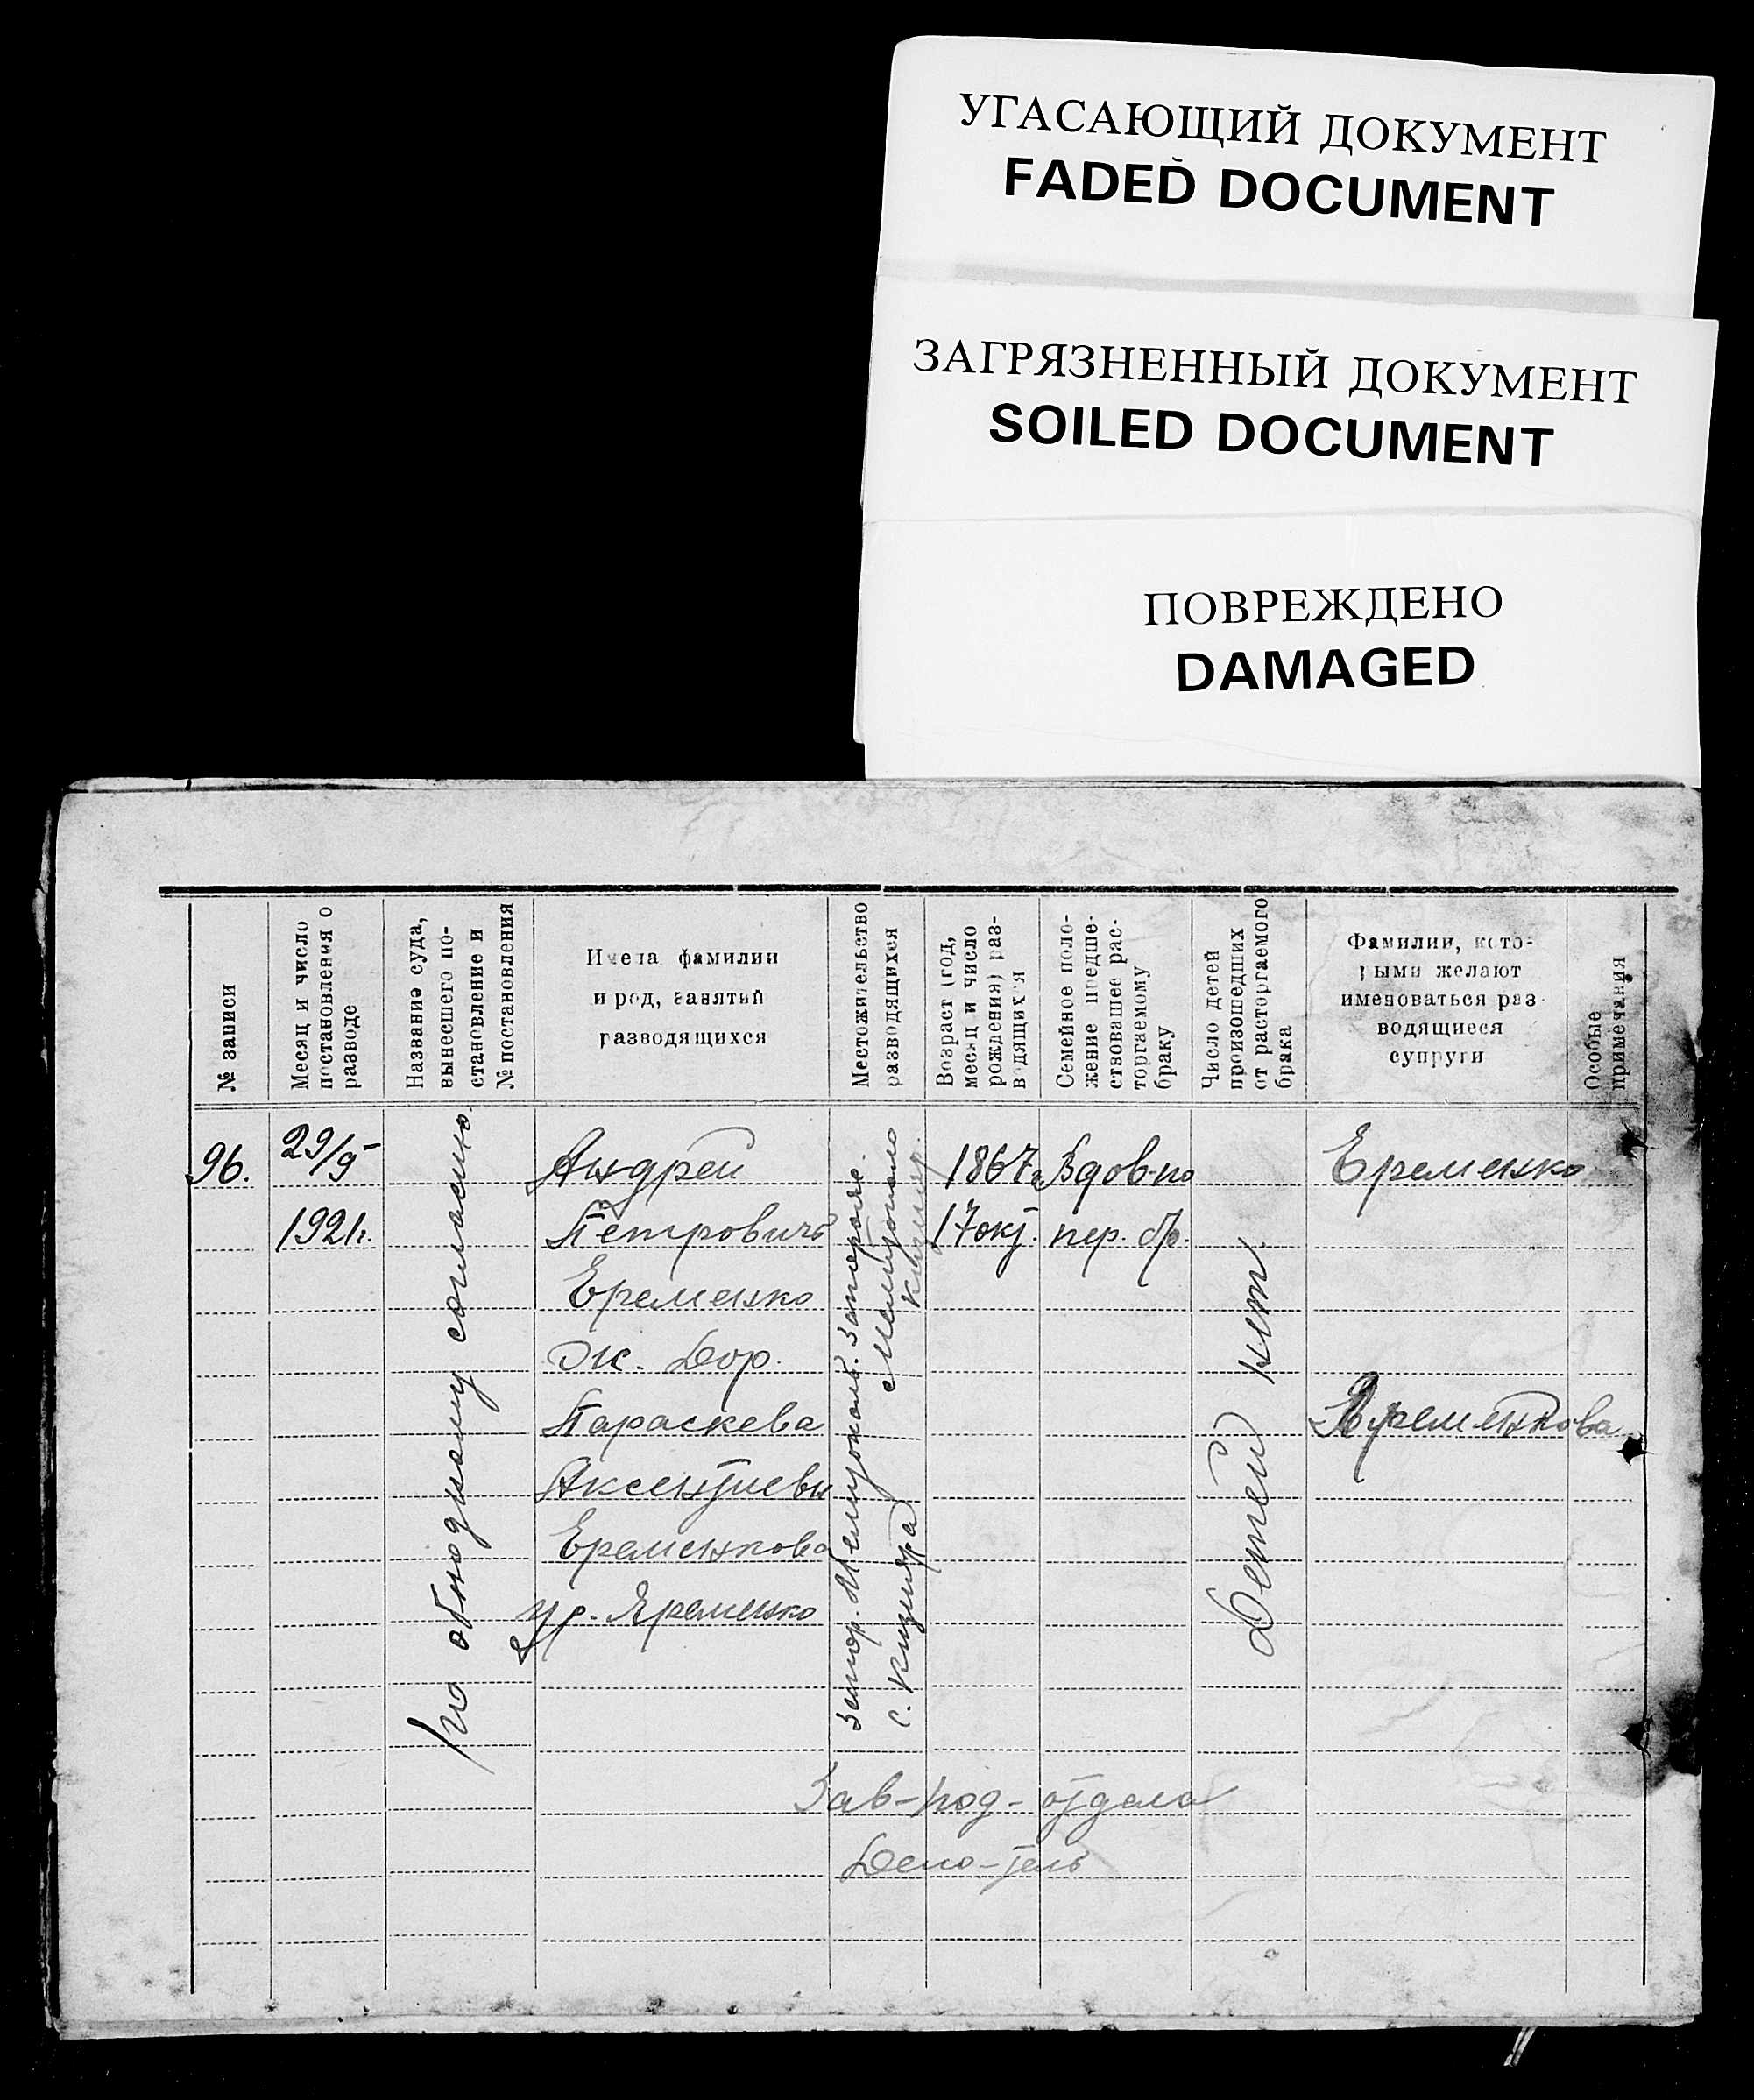 УГАСАЮЩИЙ ДОКУМЕНТ
FADED DOCUMENT
ЗАГРЯЗНЕННЫЙ ДОКУМЕНТ
SOILED DOCUMENT
ПОВРЕЖДЕНО
DAMAGED
№ записи
Месяц и число
постановления о
разводе
Название суда,
вынесшего по-
становление и
№ постановления
Имена фамилии
и род, занятый
разводящихся
Местожительство
разводящихся
Возраст (год,
месяц и число
рождения) раз-
водящихся
Семейное поло-
жение предше-
ствовавшее рас-
торгаемому
браку
Число детей
произошедших
от расторгаемого
брака
Фамилии, кото-
рыми желают
именоваться раз-
водящиеся
супруги
Особые
примечания
96.
29/9
1921г.
По обоюдному согласию.
Андрей
Петровичъ
Еременко
Параскева
Еременкова
ур. Яременко
с. Кизияра
1867г
17 окт.
Вдов по
пер. бр.
Детей нет.
Еременко
Яременкова
Зав-под-отдела
Дело-тель